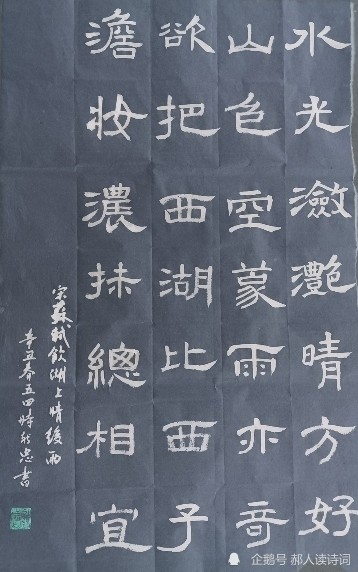 水光瀲灩晴方好
山色空蒙雨亦奇
欲把西湖比西子
澹妆濃抹總相宜
宋蘇軾飲湖上晴後雨
辛丑春五四時忠書
企鹅号 郝人读诗词